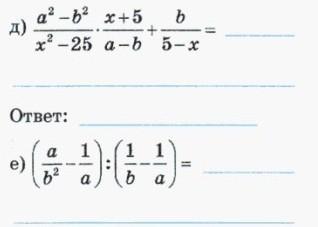 д) \frac{a^2-b^2}{x^2-25} \cdot \frac{x+5}{a-b} + \frac{b}{5-x} =
Ответ:
е) \left(\frac{a}{b^2} - \frac{1}{a}\right) : \left(\frac{1}{b} - \frac{1}{a}\right) =